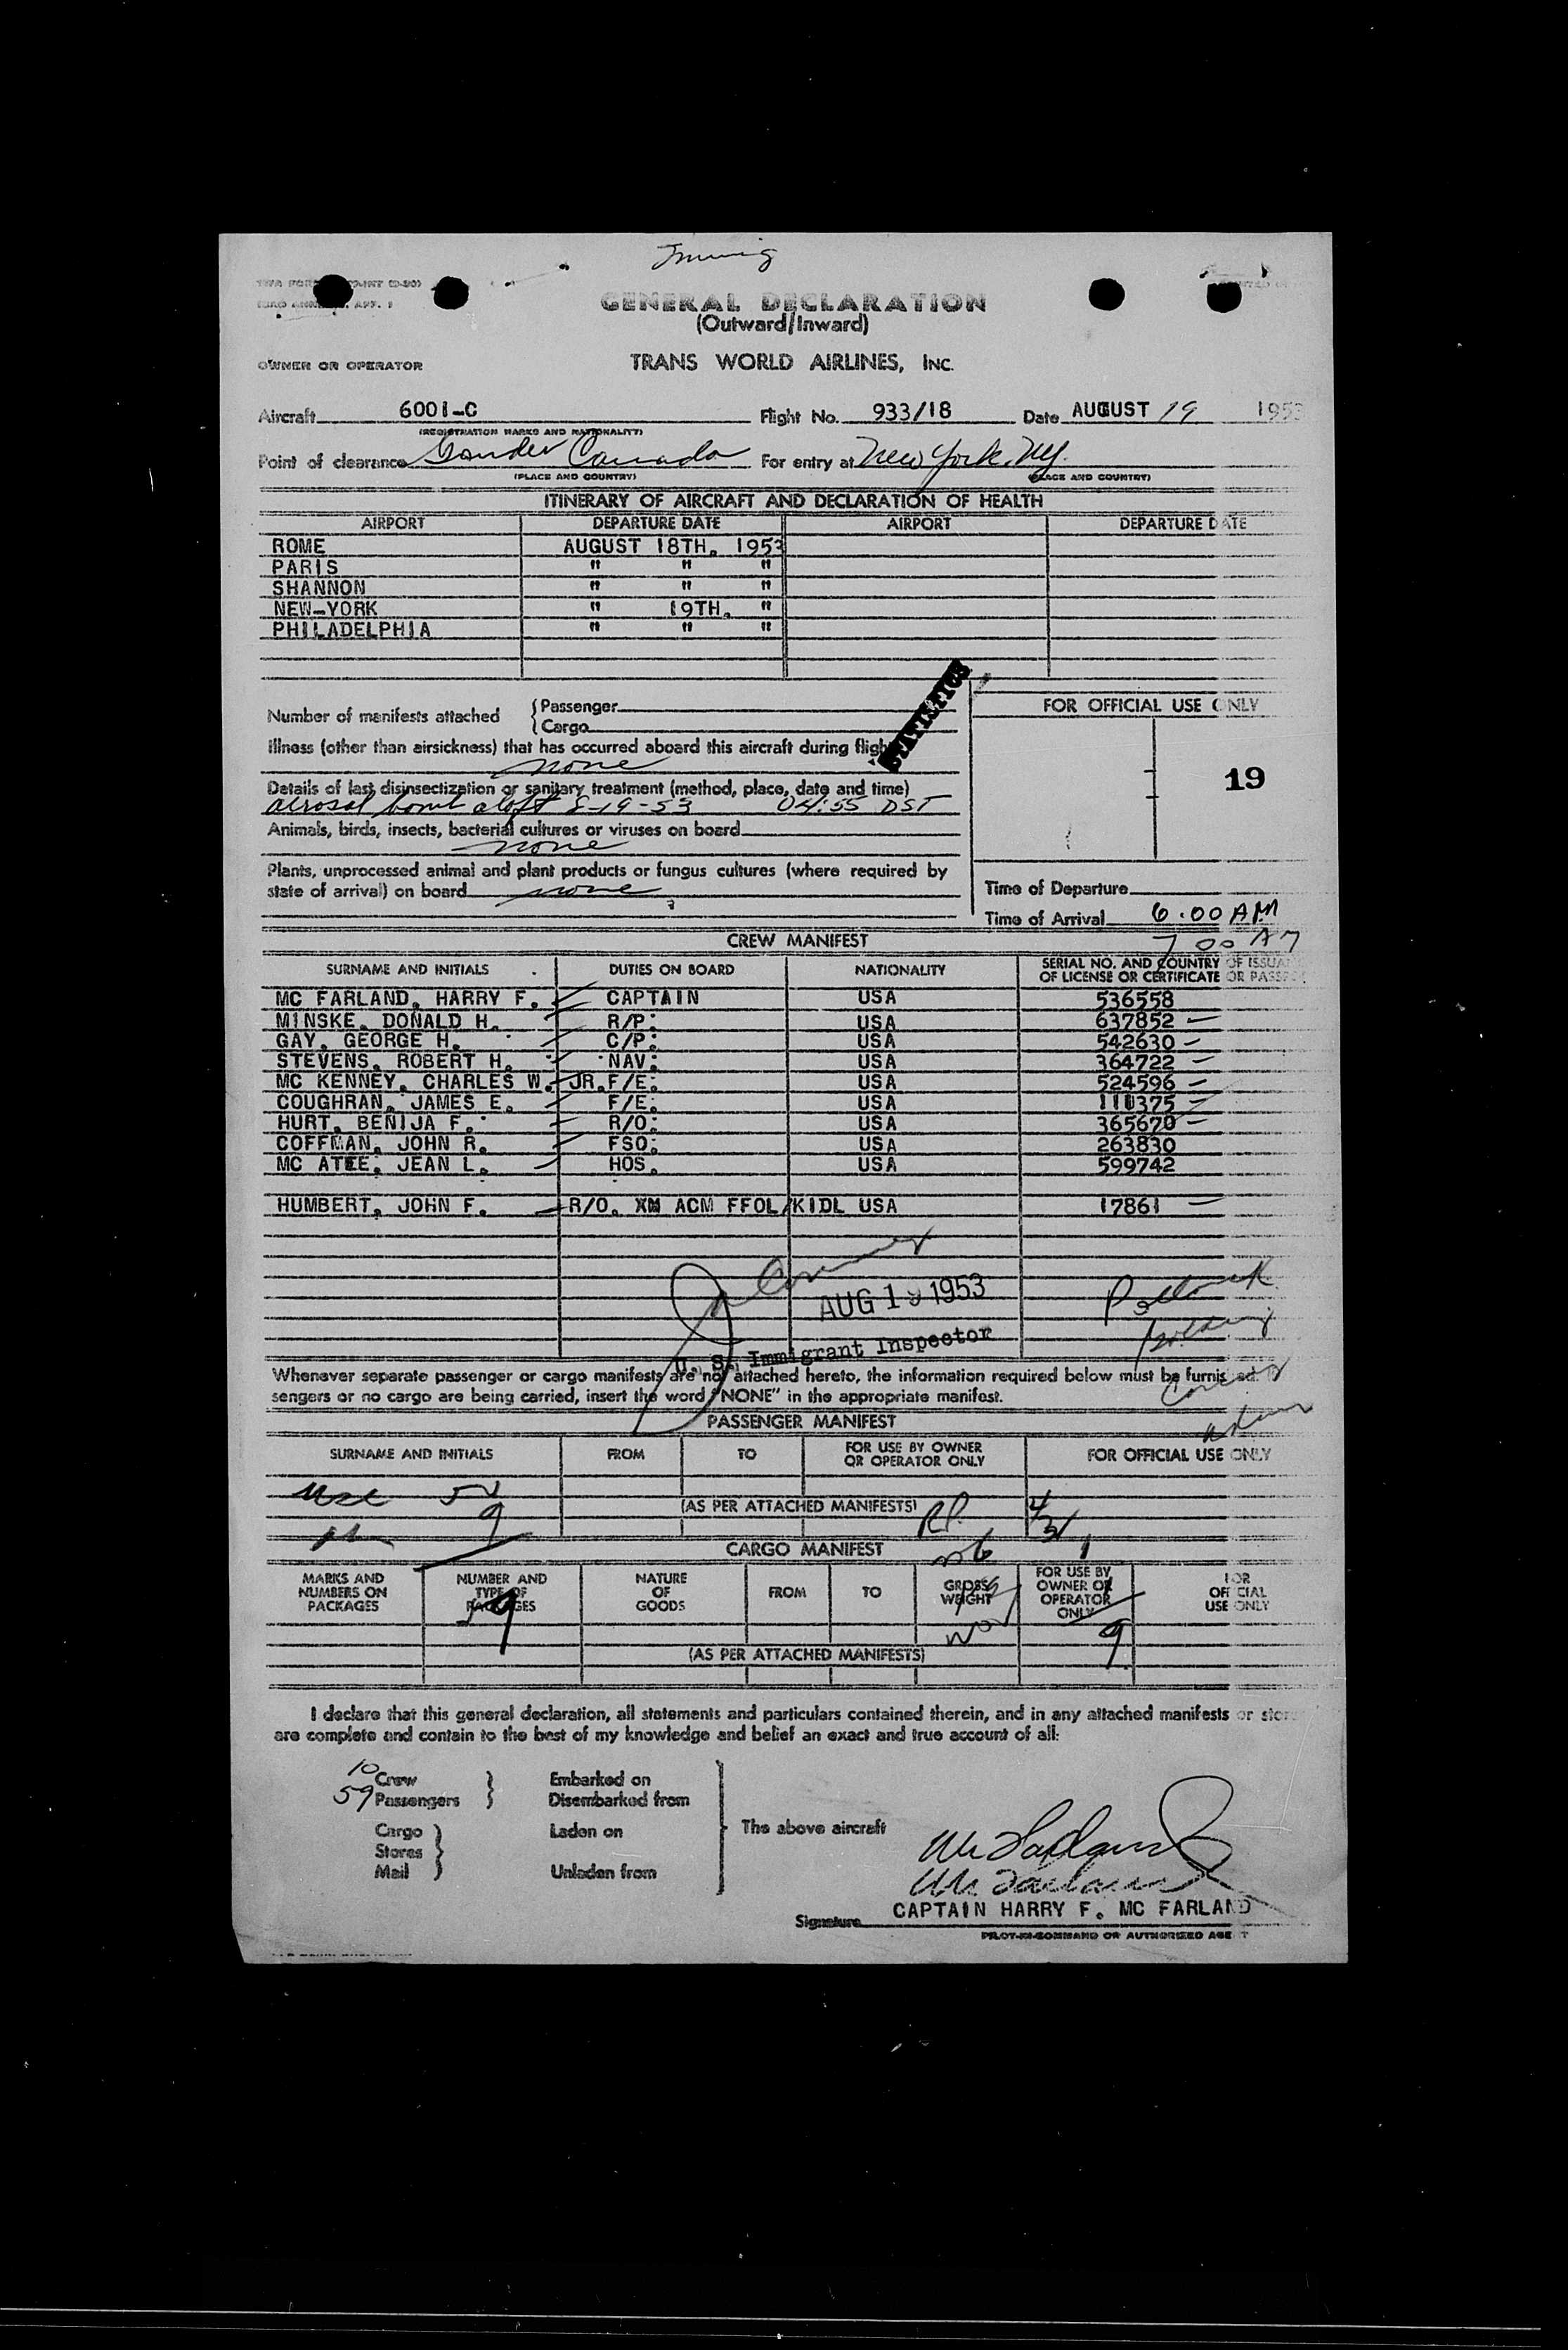 GENERAL DECLARATION
(Outward/Inward)
OWNER OR OPERATOR TRANS WORLD AIRLINES, INC.
Aircraft 6001-C Flight No. 933/18 Date AUGUST 19 1953
(REGISTRATION MARKS AND NATIONALITY)
Point of clearance Gander Canada For entry at New York, NY.
(PLACE AND COUNTRY) (PLACE AND COUNTRY)
ITINERARY OF AIRCRAFT AND DECLARATION OF HEALTH
AIRPORT DEPARTURE DATE AIRPORT DEPARTURE DATE
ROME AUGUST 18TH. 1953
PARIS " " "
SHANNON " " "
NEW-YORK " 19TH. "
PHILADELPHIA " " "
STATISTICS
FOR OFFICIAL USE ONLY
Number of manifests attached { Passenger
{ Cargo
Illness (other than airsickness) that has occurred aboard this aircraft during flight
none
19
Details of last disinsectization or sanitary treatment (method, place, date and time)
aerosol bomb aloft 8-19-53 04:55 DST
Animals, birds, insects, bacterial cultures or viruses on board
none
Plants, unprocessed animal and plant products or fungus cultures (where required by
state of arrival) on board none
Time of Departure
Time of Arrival 6:00 AM
7 00 AM
CREW MANIFEST
SURNAME AND INITIALS DUTIES ON BOARD NATIONALITY SERIAL NO. AND COUNTRY OF ISSUANCE
OF LICENSE OR CERTIFICATE OR PASSPORT
MC FARLAND, HARRY F. CAPTAIN USA 536558
MINSKE, DONALD H. R/P. USA 637852
GAY, GEORGE H. C/P. USA 542630
STEVENS, ROBERT H. NAV. USA 364722
MC KENNEY, CHARLES W. JR. F/E. USA 524596
COUGHRAN, JAMES E. F/E. USA 110375
HURT, BENIJA F. R/O. USA 365670
COFFMAN, JOHN R. FSO. USA 263830
MC ATEE, JEAN L. HOS. USA 599742
HUMBERT, JOHN F. R/O. XM ACM FFOL/KIDL USA 17861
AUG 19 1953
U. S. Immigrant Inspector
Whenever separate passenger or cargo manifests are not attached hereto, the information required below must be furnished.
sengers or no cargo are being carried, insert the word "NONE" in the appropriate manifest.
PASSENGER MANIFEST
SURNAME AND INITIALS FROM TO FOR USE BY OWNER
OR OPERATOR ONLY FOR OFFICIAL USE ONLY
(AS PER ATTACHED MANIFESTS)
9
CARGO MANIFEST
MARKS AND
NUMBERS ON
PACKAGES NUMBER AND
TYPE OF
PACKAGES NATURE
OF
GOODS FROM TO GROSS
WEIGHT FOR USE BY
OWNER OR
OPERATOR
ONLY FOR
OFFICIAL
USE ONLY
59 9
(AS PER ATTACHED MANIFESTS)
I declare that this general declaration, all statements and particulars contained therein, and in any attached manifests or stores
are complete and contain to the best of my knowledge and belief an exact and true account of all:
10 Crew Embarked on
59 Passengers Disembarked from
Cargo Laden on The above aircraft
Stores
Mail Unladen from
McFarland
McFarland
CAPTAIN HARRY F. MC FARLAND
Signature
PILOT-IN-COMMAND OR AUTHORIZED AGENT